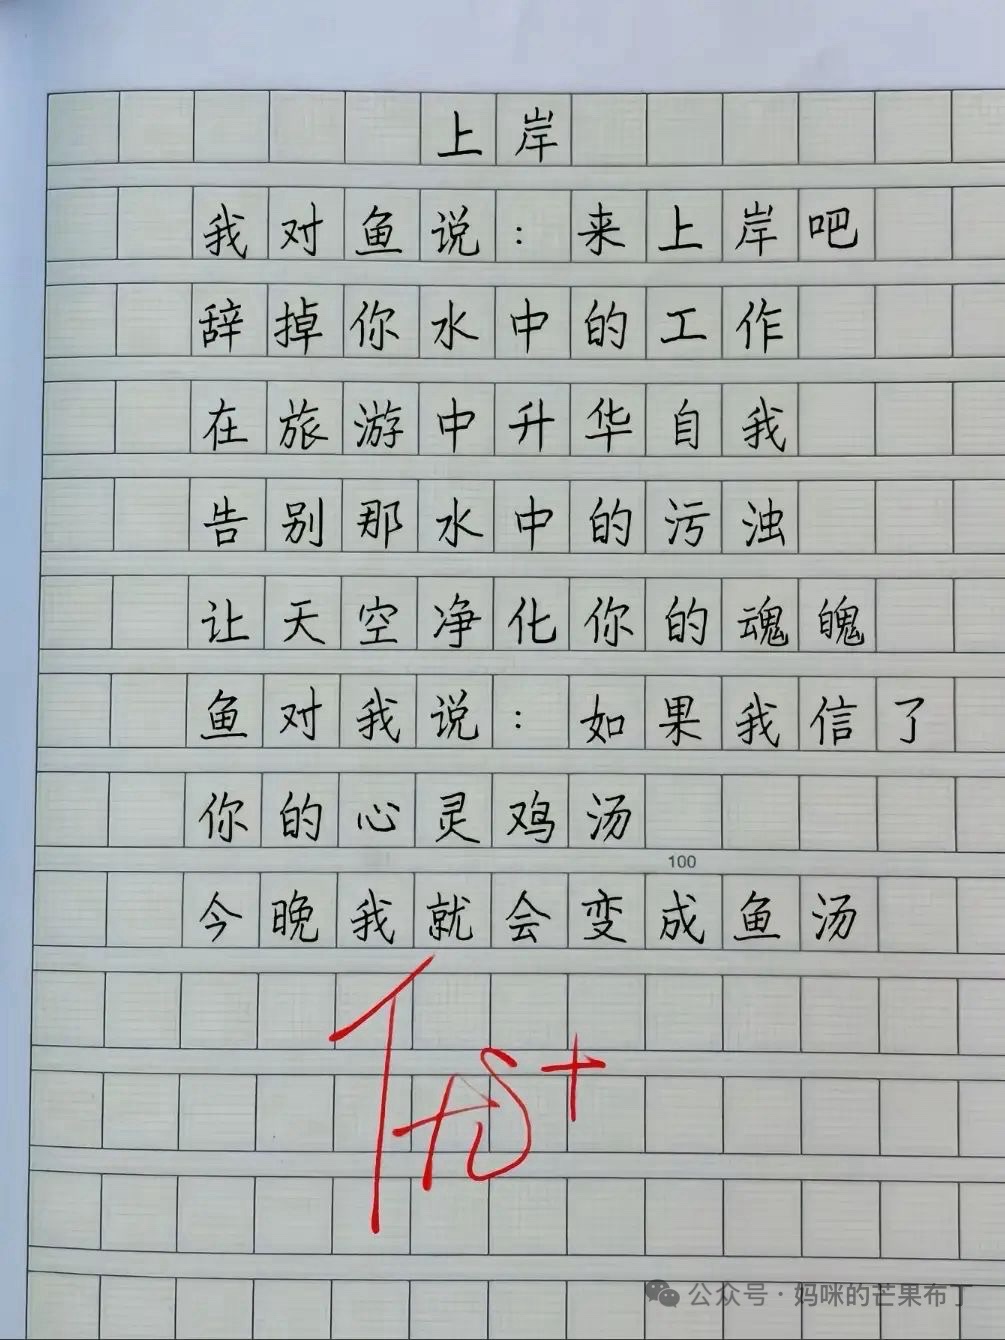 上岸
我对鱼说：来上岸吧
辞掉你水中的工作
在旅游中升华自我
告别那水中的污浊
让天空净化你的魂魄
鱼对我说：如果我信了
你的心灵鸡汤
100
今晚我就会变成鱼汤
公众号·妈咪的芒果布丁